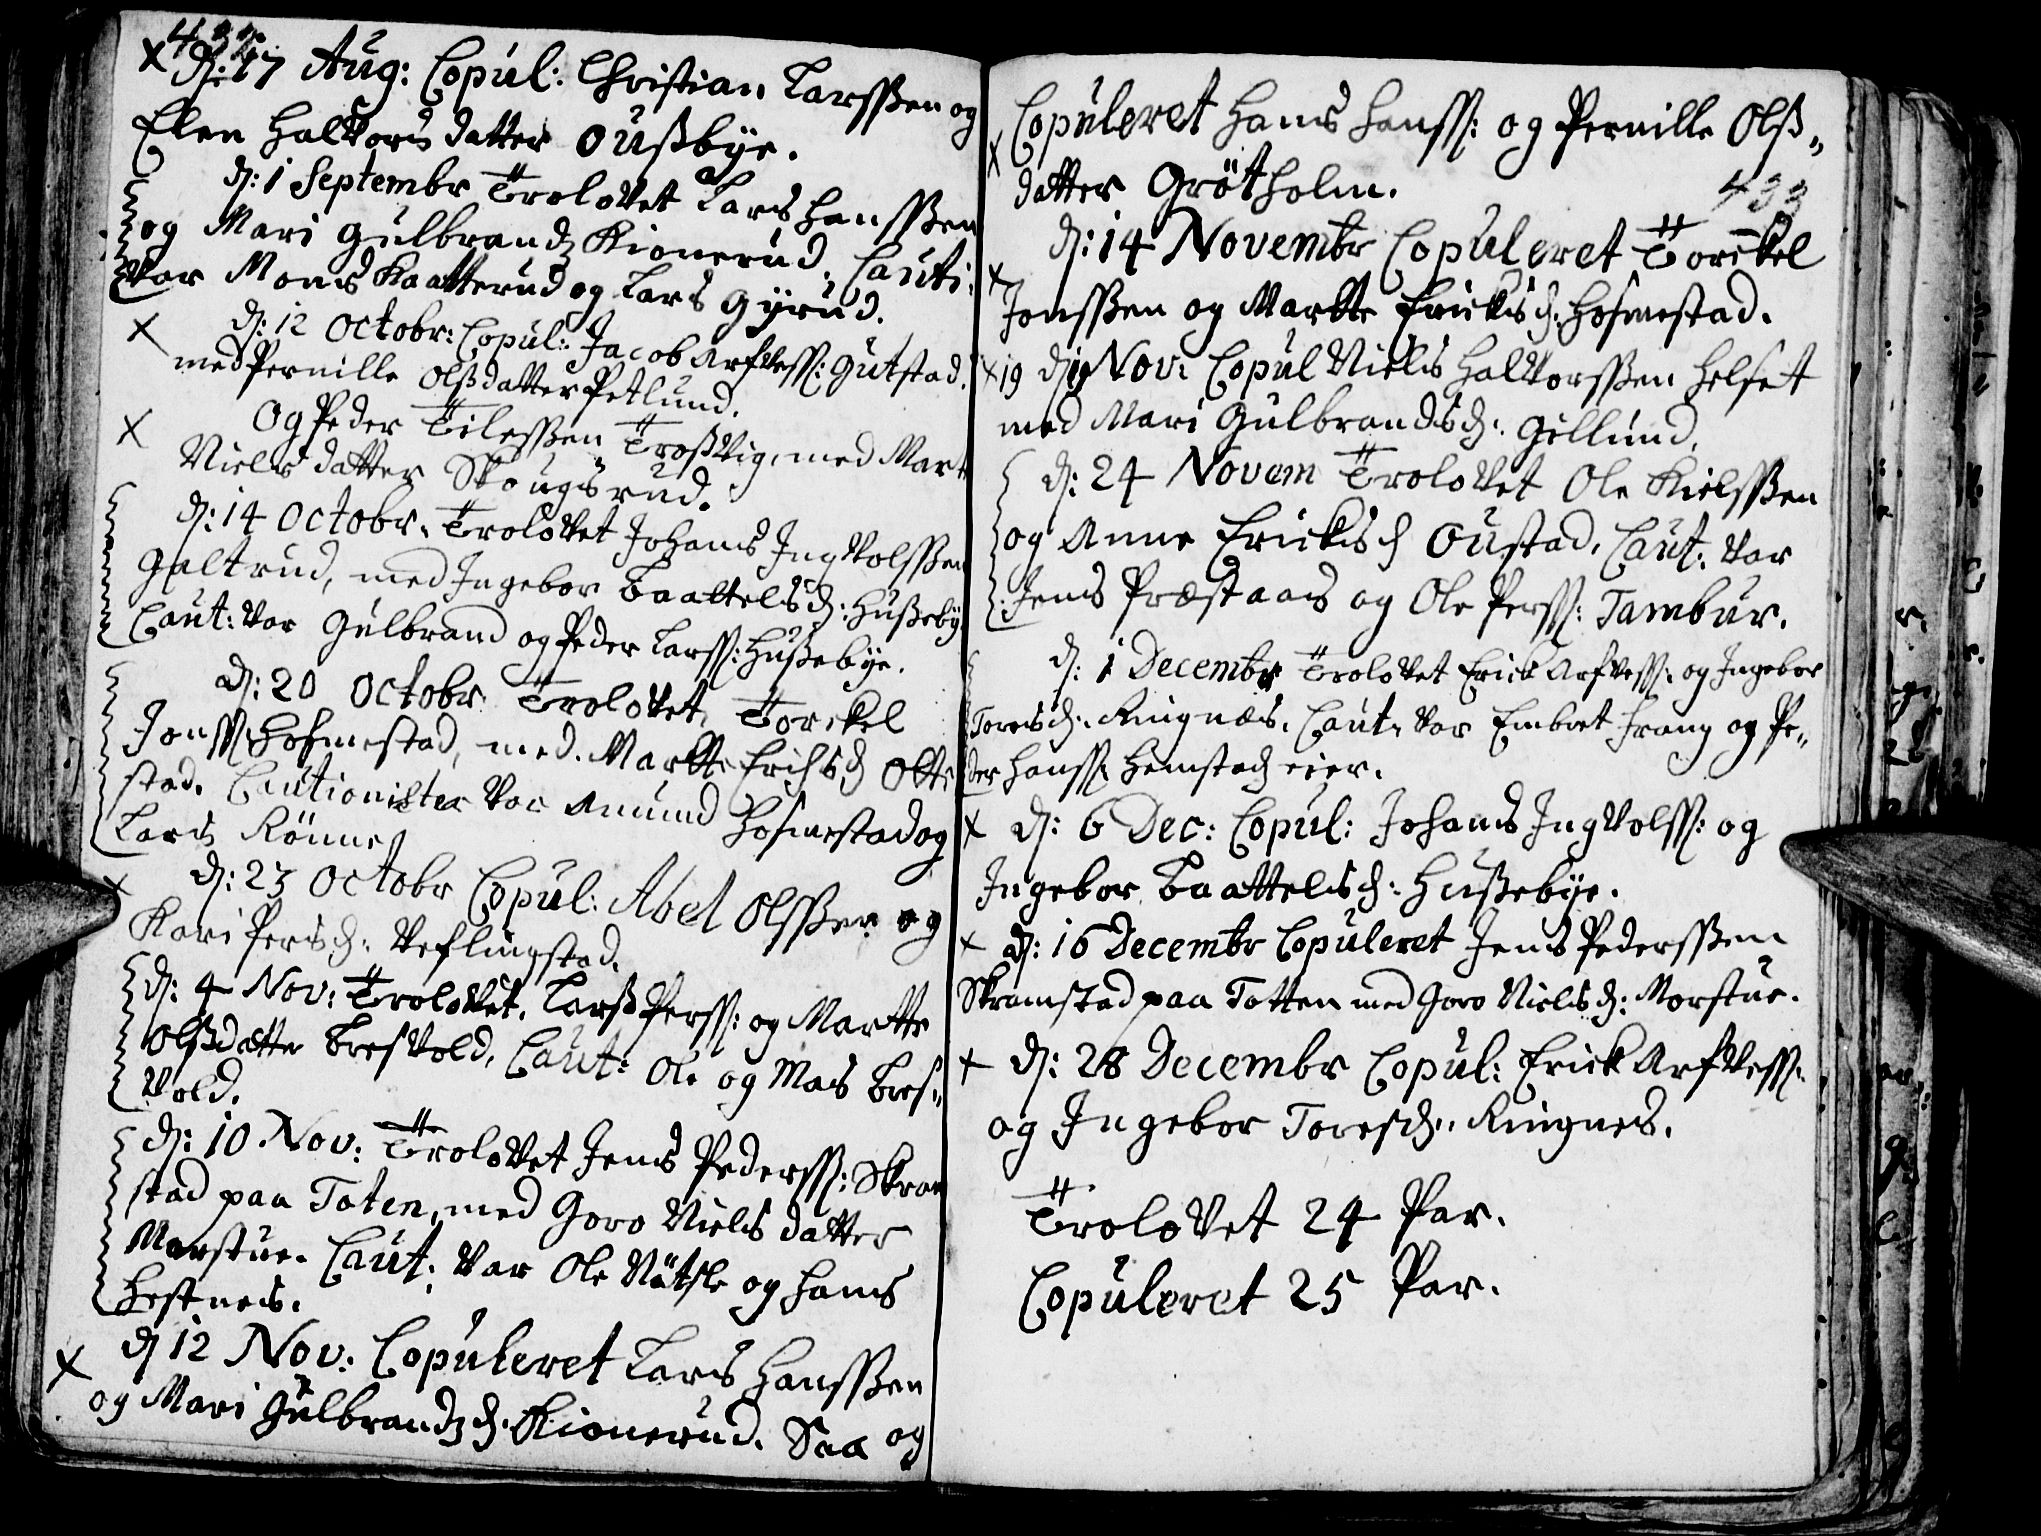 432
x d: 17 Aug: Copul: Christian Larssen og
Elen Halvors datter Oußbye.
d: 1 Septembr Trolovet Lars Hanssen
og Mari Gulbrandz Kionerud, Cauti:
var Mons Kaatterud og Lars Gyrud.
x d: 12 Octobr: Copul: Jacob Arfvess: Gutstad
med Pernille Olßdatter Petlund.
x Og Peder Tilessen Troßvig, med Mart
Niels datter Skougsrud.
d: 14 Octobr. Trolovet Johans Ingvolssen
Galtrud, med Ingebor Baattelsd: Hußeby
Caut: var Gulbrand og Peder Larss: Hußebye.
d: 20 Octobr Trolovet, Torckel
Jonss: Hofmestad, med Martte Erichsd Otte
stad. Cautionister var Amund Hofmestad og
Lars Rönne
x d: 23 Octobr Copul: Abel Olssen og
Kari Persd: Veflingstad.
d: 4 Nov: Trolovet, Larß Perss: og Martte
Olßdatter Bresvold, Caut: Ole og Mas Bres„
vold.
d: 10 Nov: Trolovet Jens Pederss: Skram
stad paa Toten, med Goro Niels datter
Morstue. Caut: var Ole Nätsle og Hans
Hestnes.
x d 12 Nov: Copuleret Lars Hanssen
og Mari Gulbrandz d. Kionerud. Saa og
x Copuleret Hans Hanss: og Pernille Olß„
datter Grötholm.
433
x d: 14 Novembr Copuleret Torckel
Jonssen og Martte Ericksd: Hofmestad.
x 19 d: 19 Nov: Copul Niels Halvorssen Helset
med Mari Gulbrandsd: Gillund.
d: 24 Novem Trolovet Ole Kielssen
og Anne Ericksd Oustad, Caut: var
Jens Præstaas og Ole Perss: Tambur.
d: 1 Decembr Trolovet Erick Arfvess: og Ingebor
Toresd: Ringnæs. Caut: var Embret Frang og Pe„
der Hanss Hemstad eier.
x d: 6 Dec: Copul: Johans Ingvolss: og
Ingebor Baattelsd: Hußebye.
x d: 16 Decembr Copuleret Jens Pederssen
Skramstad paa Totten med Goro Nielsd: Morstue.
x d: 28 Decembr Copul: Erick Arfvess:
og Ingebor Toresd: Ringnes.
Trolovet 24 Par.
Copuleret 25 Par.